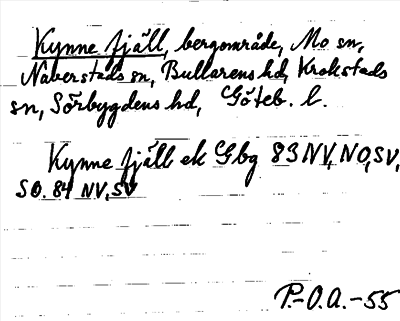 Kynne fjäll, bergområde, Mo sn,
Naverstads sn, Bullarens hd, Krokstads
sn, Sörbygdens hd, Göteb. l.
Kynne fjäll ek Gbg 83 NV, NO, SV,
SO. 84 NV, SV
P.-O.A.-55